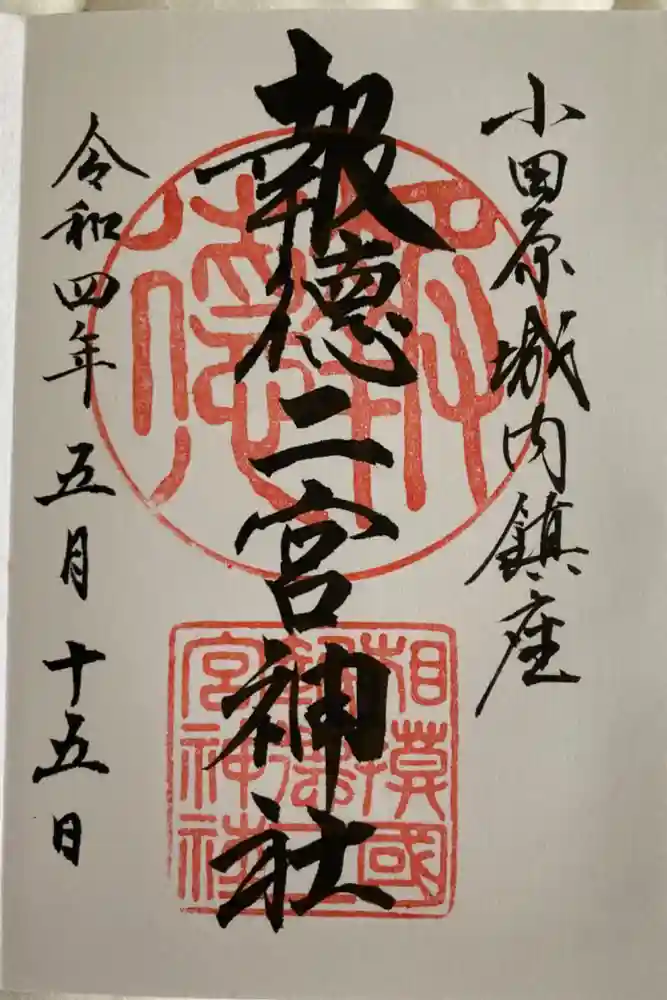 小田原城内鎮座
報徳二宮神社
令和四年五月十五日
報徳
相模國
報徳二
宮神社